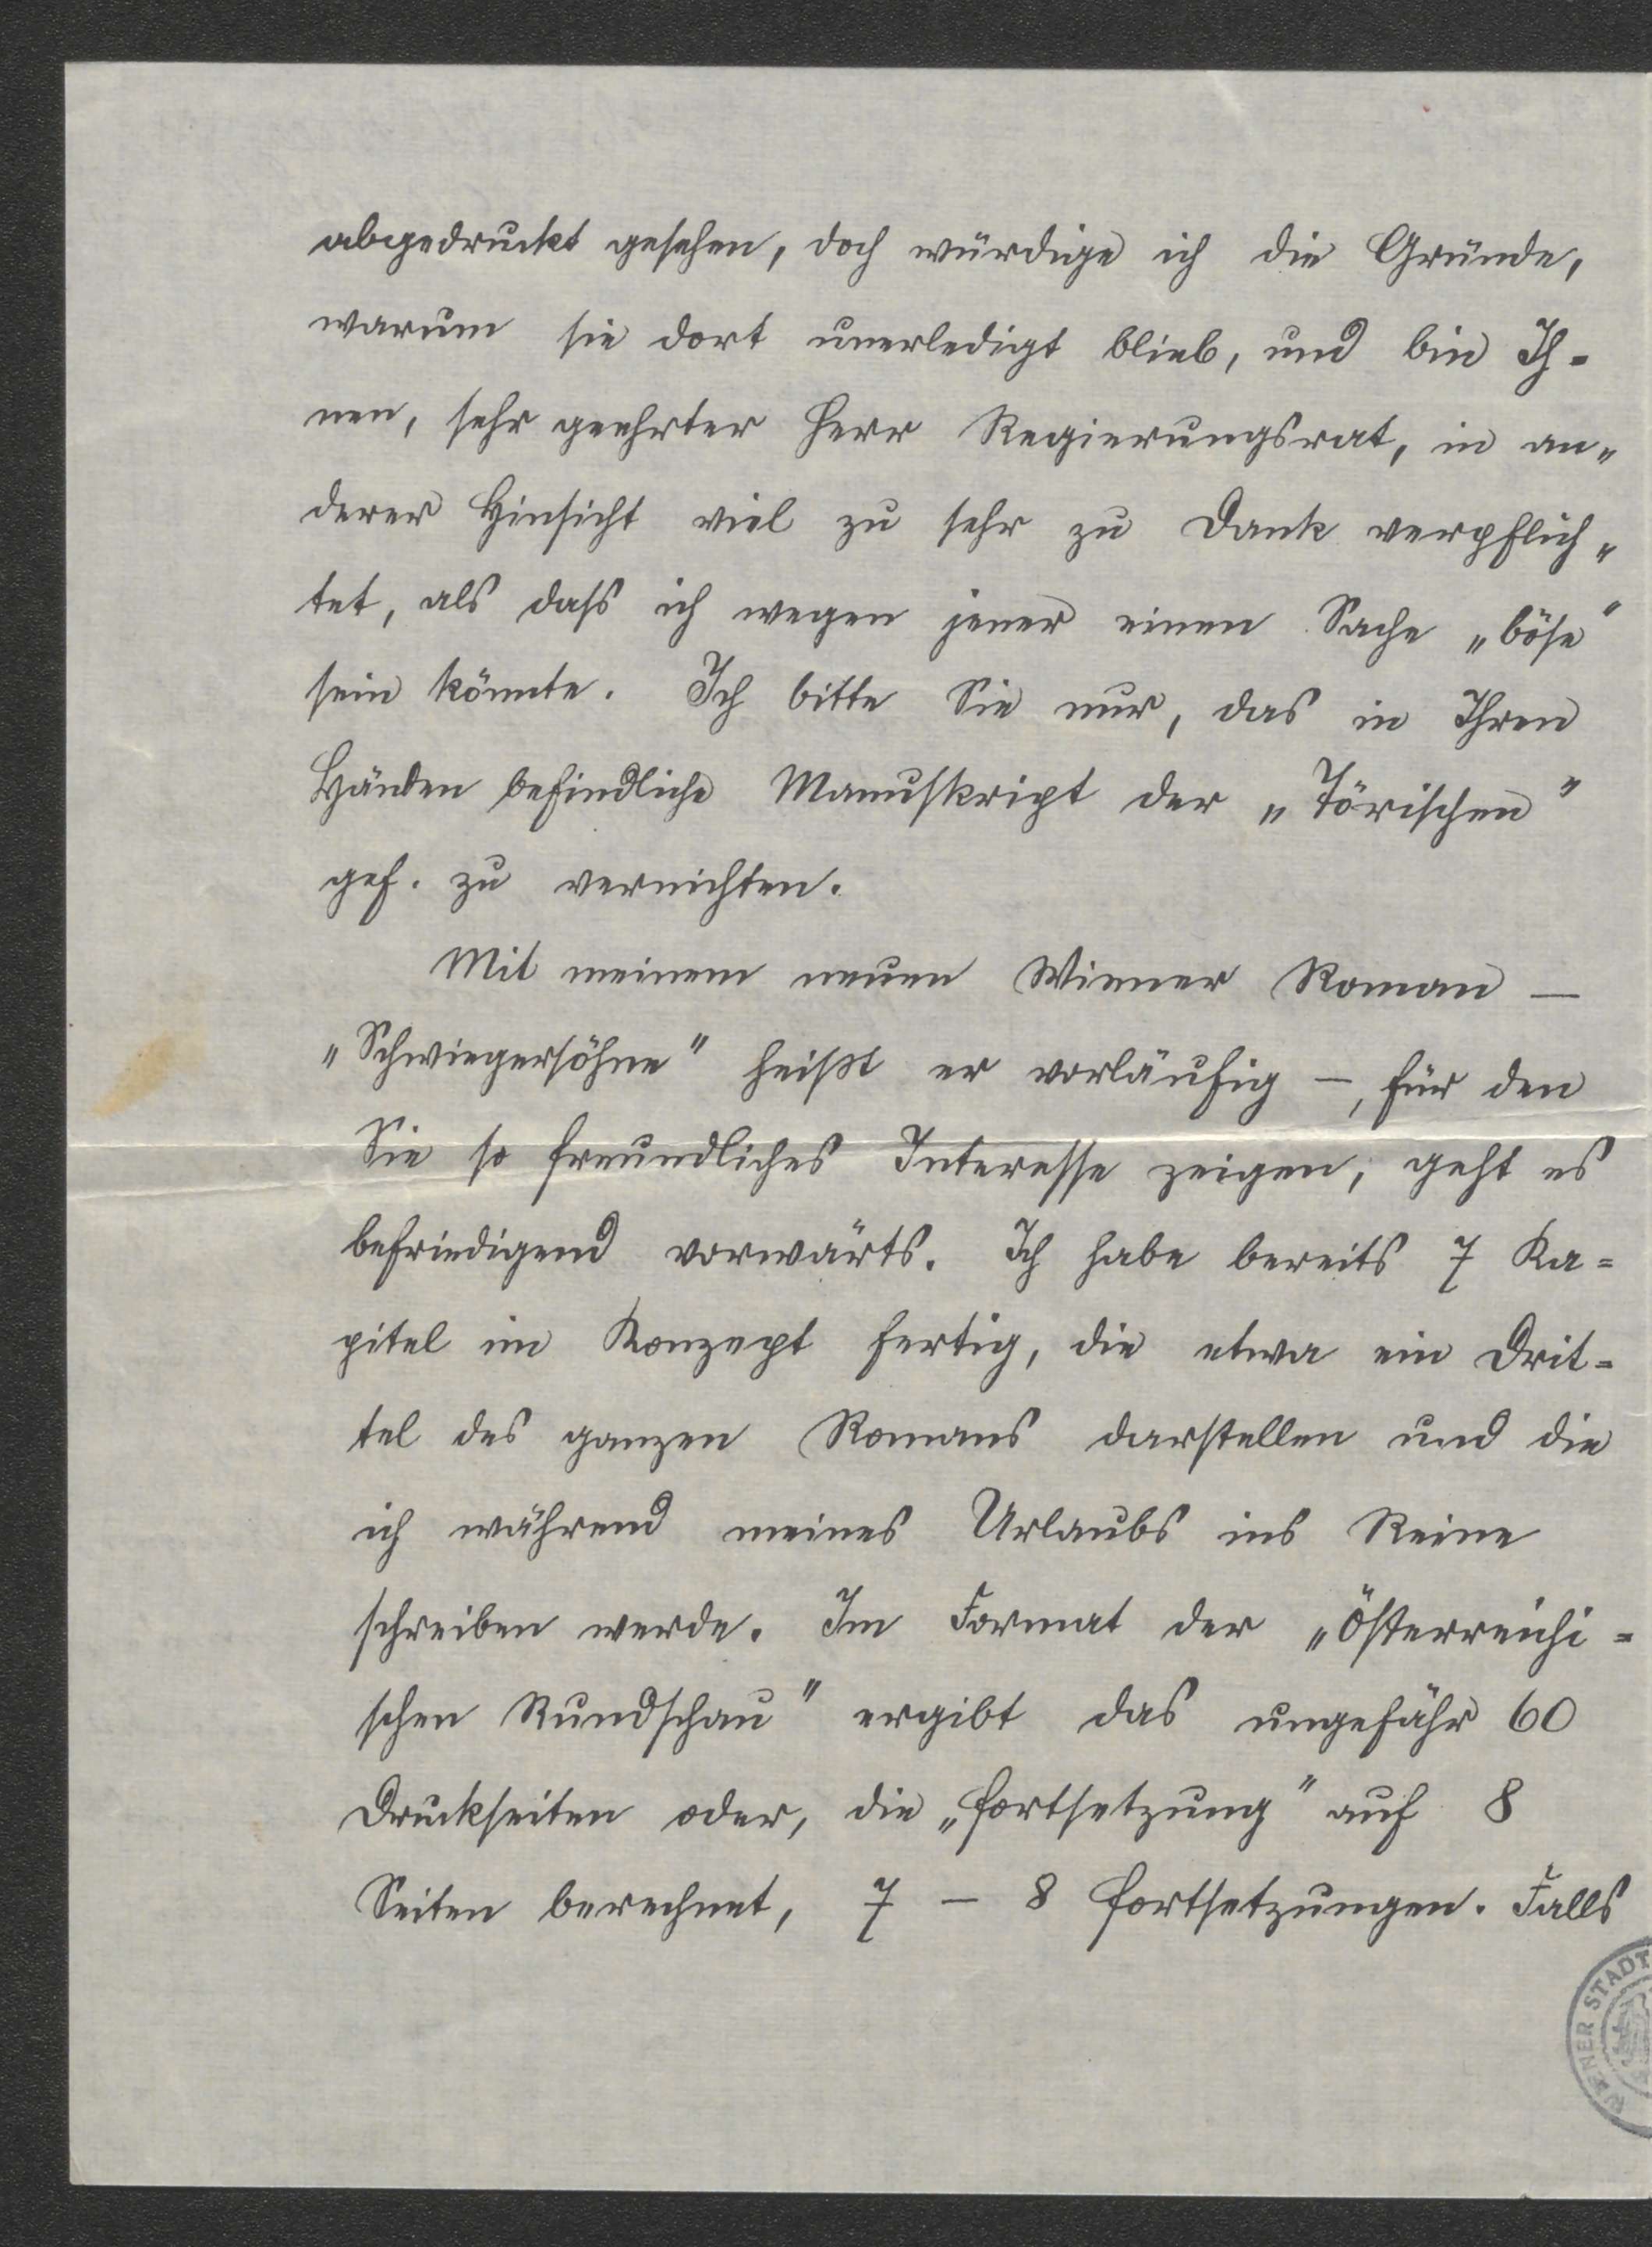 abgedruckt gesehen, doch würdige ich die Gründe,
warum sie dort unerledigt blieb, und bin Ih=
nen, sehr geehrter Herr Regierungsrat, in an„
derer Hinsicht viel zu sehr zu Dank verpflich„
tet, als dass ich wegen jener einen Sache „böse“
sein könnte. Ich bitte Sie nur, das in Ihren
Händen befindliche Manuskript der „Törischen“
gef. zu vernichten.
Mit meinem neuen Wiener Roman —
„Schwiegersöhne“ heißt er vorläufig —, für den
Sie so freundliches Interesse zeigen, geht es
befriedigend vorwärts. Ich habe bereits 7 Ka=
pitel im Konzept fertig, die etwa ein Drit=
tel des ganzen Romans darstellen und die
ich während meines Urlaubs ins Reine
schreiben werde. Im Format der „Österreichi=
schen Rundschau“ ergibt das ungefähr 60
Druckseiten oder, die „Fortsetzung“ auf 8
Seiten berechnet, 7 — 8 Fortsetzungen. Falls
WIENER STADT